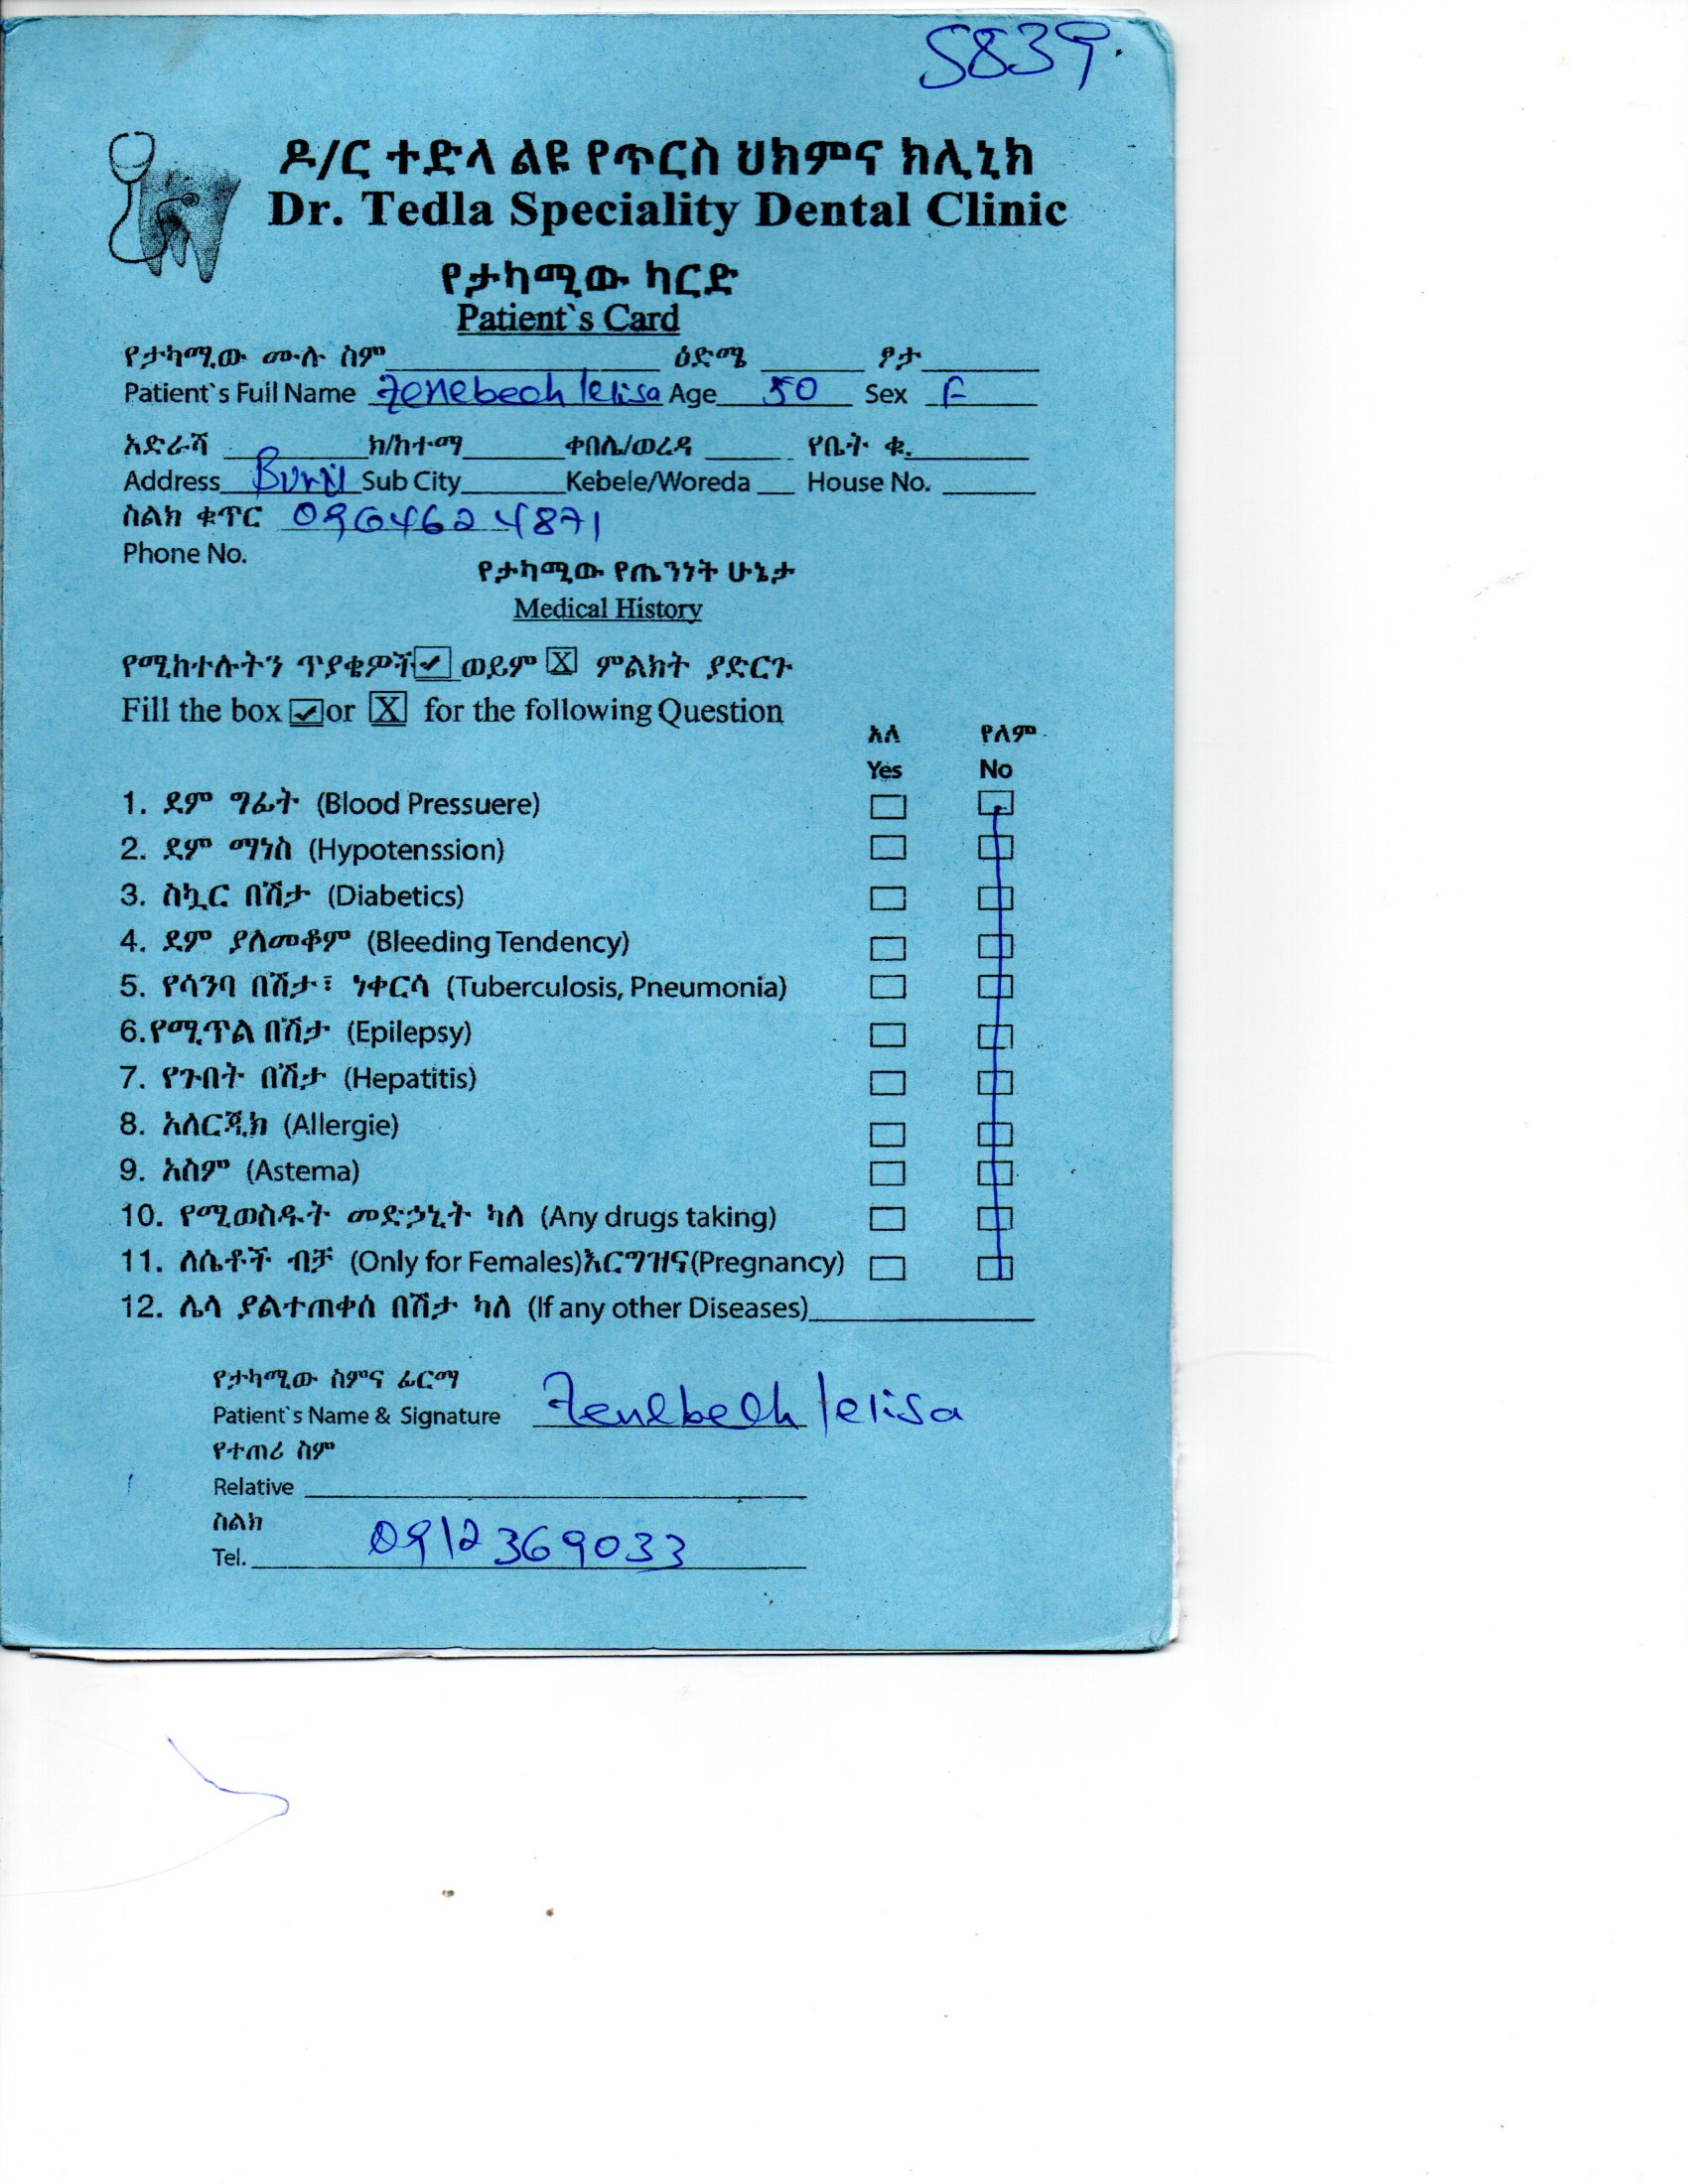 5839
ዶ/ር ተድላ ልዩ የጥርስ ህክምና ክሊኒክ
Dr. Tedla Speciality Dental Clinic
የታካሚው ካርድ
Patient`s Card
የታካሚው ሙሉ ስም ዕድሜ ፆታ
Patient`s Full Name Zenebech lelisa Age 50 Sex F
አድራሻ ክ/ከተማ ቀበሌ/ወረዳ የቤት ቁ.
Address Sub City Kebele/Woreda House No.
ስልክ ቁጥር 0964624871
Phone No.
የታካሚው የጤንነት ሁኔታ
Medical History
የሚከተሉትን ጥያቄዎች ✓ ወይም X ምልክት ያድርጉ
Fill the box ✓ or X for the following Question
አለ የለም
Yes No
1. ደም ግፊት (Blood Pressuere)
2. ደም ማነስ (Hypotenssion)
3. ስኳር በሽታ (Diabetics)
4. ደም ያለመቆም (Bleeding Tendency)
5. የሳንባ በሽታ፣ ነቀርሳ (Tuberculosis, Pneumonia)
6.የሚጥል በሽታ (Epilepsy)
7. የጉበት በሽታ (Hepatitis)
8. አለርጂክ (Allergie)
9. አስም (Astema)
10. የሚወስዱት መድኃኒት ካለ (Any drugs taking)
11. ለሴቶች ብቻ (Only for Females)እርግዝና(Pregnancy)
12. ሌላ ያልተጠቀሰ በሽታ ካለ (If any other Diseases)
የታካሚው ስምና ፊርማ
Patient`s Name & Signature Zenebech lelisa
የተጠሪ ስም
Relative
ስልክ
Tel. 0912369033